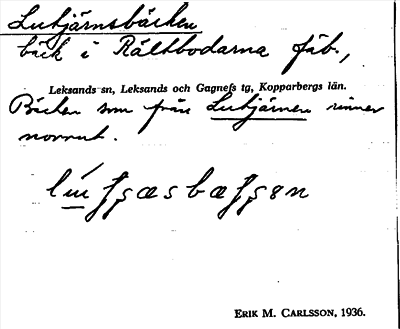 Lutjärnsbäcken
bäck i Rältbodarna fäb.,
Leksands sn, Leksands och Gagnefs tg, Kopparbergs län.
Bäcken som från Lutjärnen rinner
norrut.
ERIK M. CARLSSON, 1936.